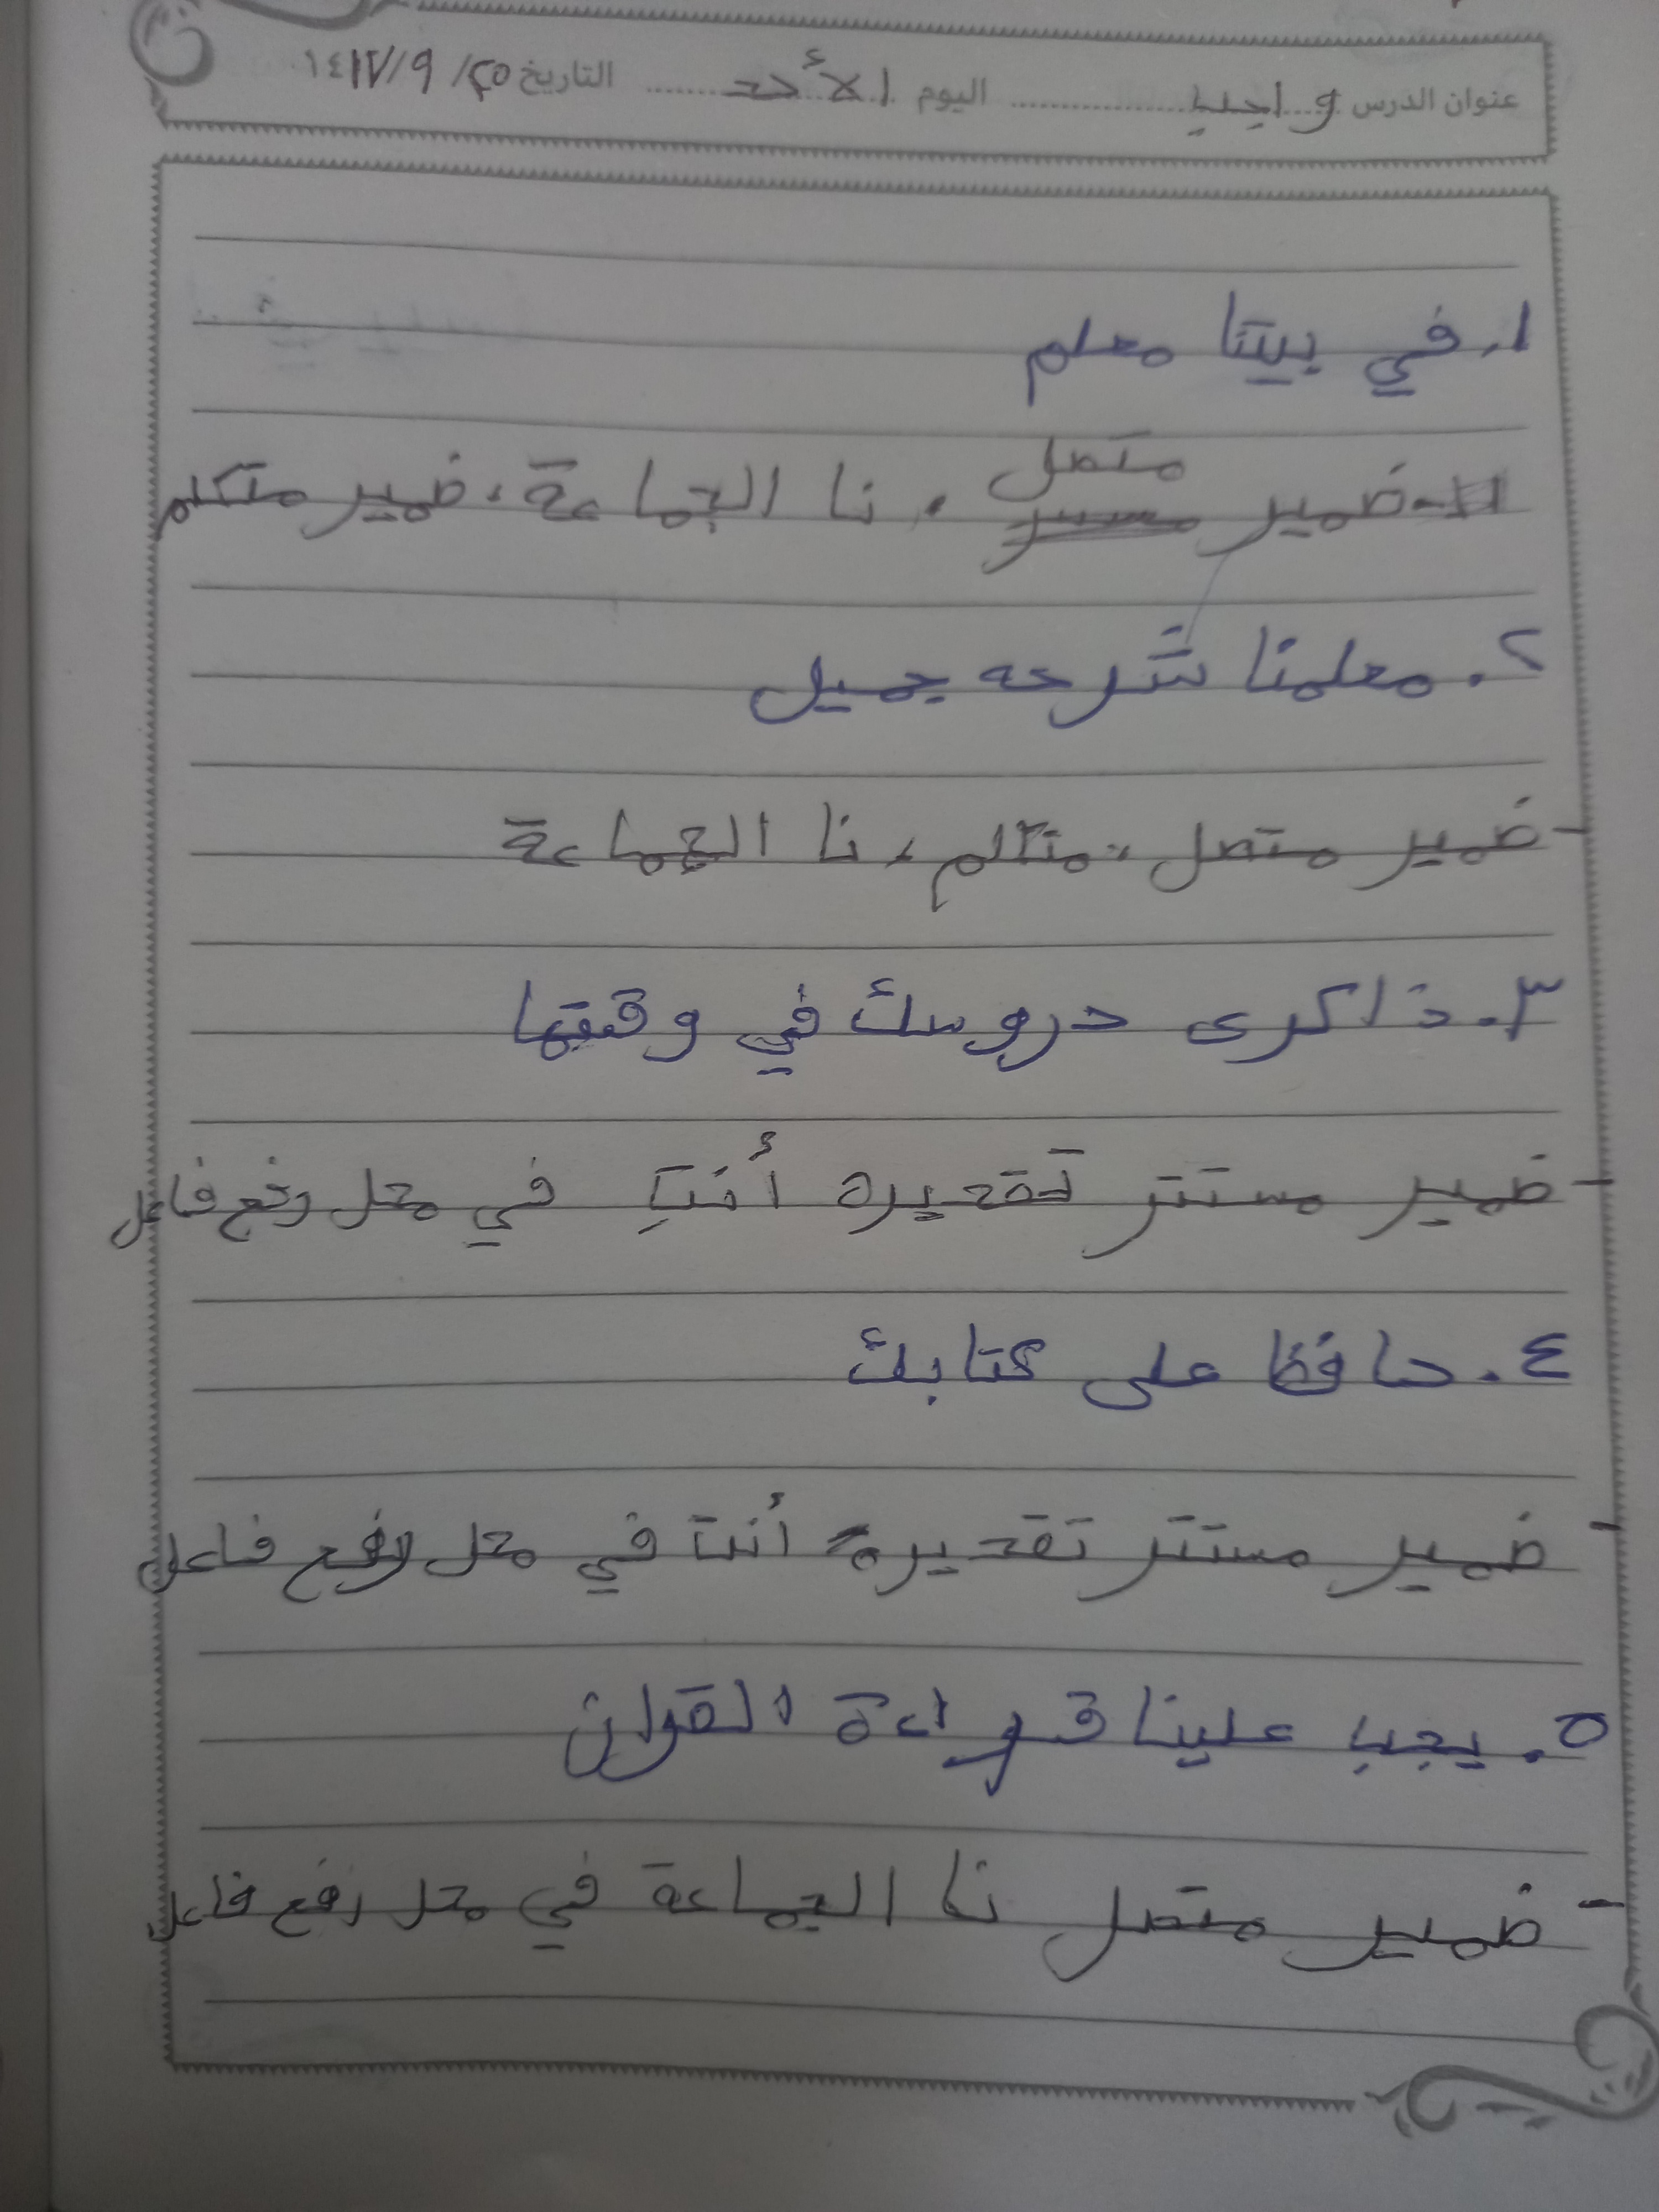 عنوان الدرس واجب اليوم الأحد التاريخ ٢٥/ ٩/ ١٤١٧
١. في بيتنا معلم
متصل
١- ضمير ، نا الجماعة، ضمير متكلم
٢. معلمنا شرحه جميل
- ضمير متصل، متكلم، نا الجماعة
٣. ذاكرى دروسك في وقتها
- ضمير مستتر تقديره أنتِ في محل رفع فاعل
٤. حافظ على كتابك
- ضمير مستتر تقديره أنت في محل رفع فاعل
٥. يجب علينا قراءة القران
- ضمير متصل نا الجماعة في محل رفع فاعل